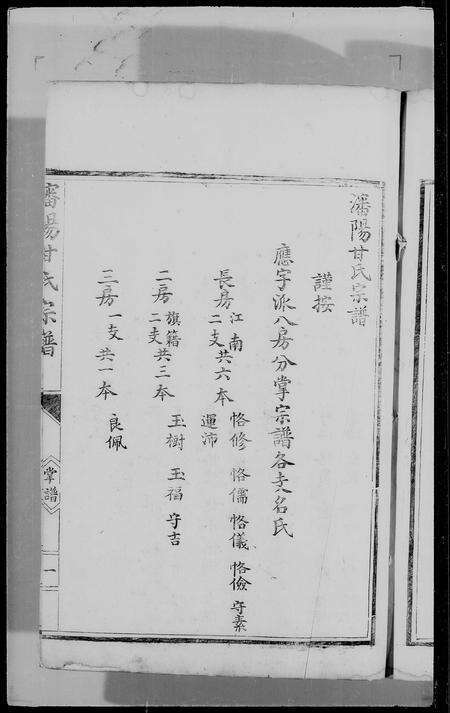 瀋陽甘氏宗譜
謹按
應字派八房分掌宗譜各支名氏
長房江南二支共六本 恪修 恪儒 恪儀 恪儉 守素 運沛
二房旗籍二支共三本 玉樹 玉福 守吉
三房一支共一本 良佩
瀋陽甘氏宗譜 掌譜 一